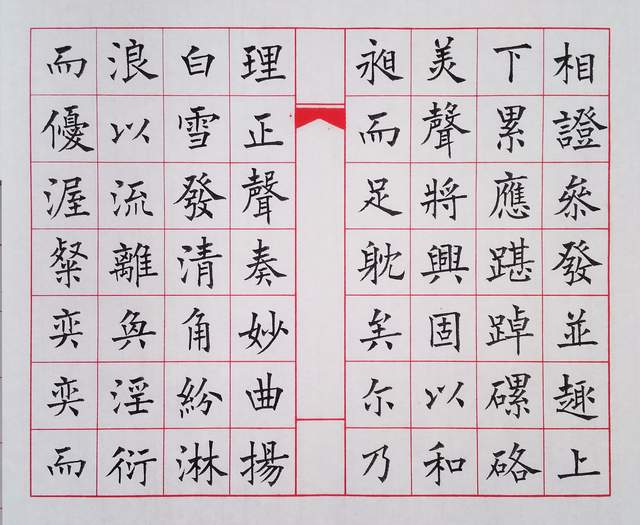 相證叅發並趣上
下累應踸踔磥硌
美聲將興固以和
昶而足躭矣尔乃
理正聲奏妙曲揚
白雪發清角紛淋
浪以流離奐淫衍
而優渥粲奕奕而